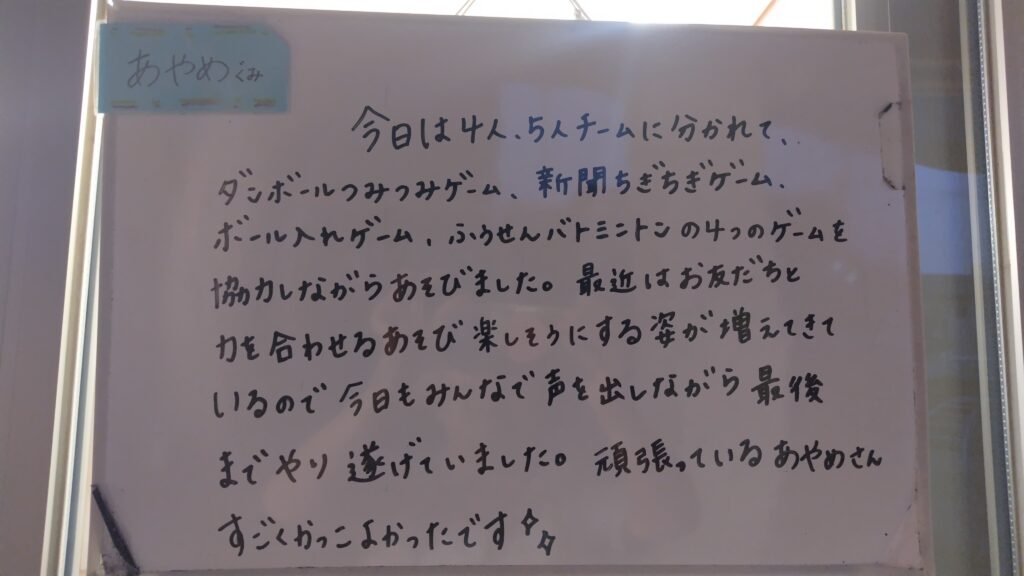 あやめぐみ
今日は4人、5人チームに分かれて、
ダンボールつみつみゲーム、新聞ちぎちぎゲーム、
ボール入れゲーム、ふうせんバトミントンの4つのゲームを
協力しながらあそびました。最近はお友だちと
力を合わせるあそび楽しそうにする姿が増えてきて
いるので今日もみんなで声を出しながら最後
までやり遂げていました。頑張っているあやめさん
すごくかっこよかったです